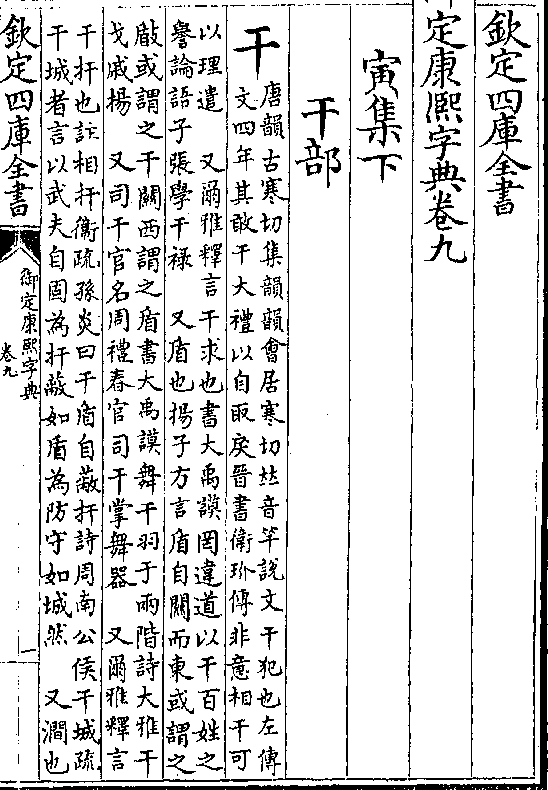 欽定四庫全書
御定康熙字典卷九
寅集下
干部
干
唐韻古寒切集韻韻會居寒切𠀤音竿說文干犯也左傳
文四年其敢干大禮以自取戾晉書衛玠傳非意相干可
以理遣　又爾雅釋言干求也書大禹謨罔違道以干百姓之
譽論語子張學干祿　又盾也揚子方言盾自關而東或謂之
瞂或謂之干關西謂之盾書大禹謨舞干羽于兩階詩大雅干
戈戚揚　又司干官名周禮春官司干掌舞器　又爾雅釋言
干扞也註相扞衛疏孫炎曰干盾自蔽扞詩周南公侯干城疏
干城者言以武夫自固為扞蔽如盾為防守如城然　又澗也
欽定四庫全書
御定康熙字典
卷九
一